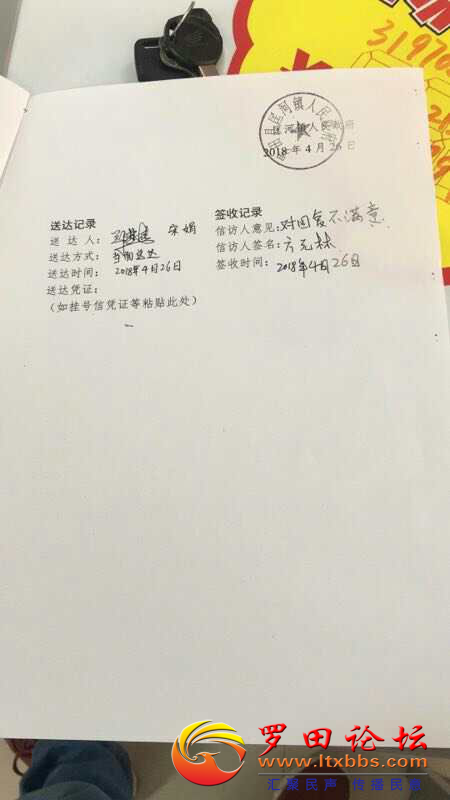 匡河镇人民政府
2018年4月26日
送达记录
送 达 人： 宋娟
送达方式：当面送达
送达时间：2018年4月26日
送达凭证：
（如挂号信凭证等粘贴此处）
签收记录
信访人意见：对回复不满意
信访人签名：方元林
签收时间：2018年4月26日
31970
罗田论坛
www.ltxbbs.com
汇聚民声 传播民情